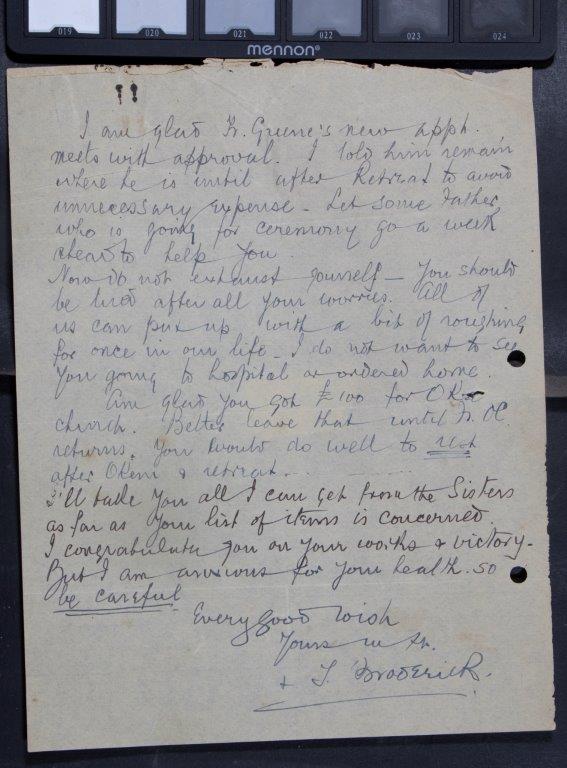 019 020 021 022 023 024
mennon®
I am glad Fr. Greene's new appt.
meets with approval. I told him remain
where he is until after Retreat to avoid
unnecessary expense - Let some Father
who is going for ceremony go a week
ahead to help you.
Now do not exhaust yourself - You should
be tired after all your worries. All of
us can put up with a bit of roughing
for once in our life - I do not want to see
you going to hospital or ordered home.
Am glad you got £100 for
church. Better leave that until Fr.
returns. You would do well to rest
after Okeni & retreat...
I'll take you all I can get from the Sisters
as far as your list of items is concerned.
I congratulate you on your works & victory -
But I am anxious for your health. so
be careful
Every good wish
Yours in Xr.
+ T. Broderick.